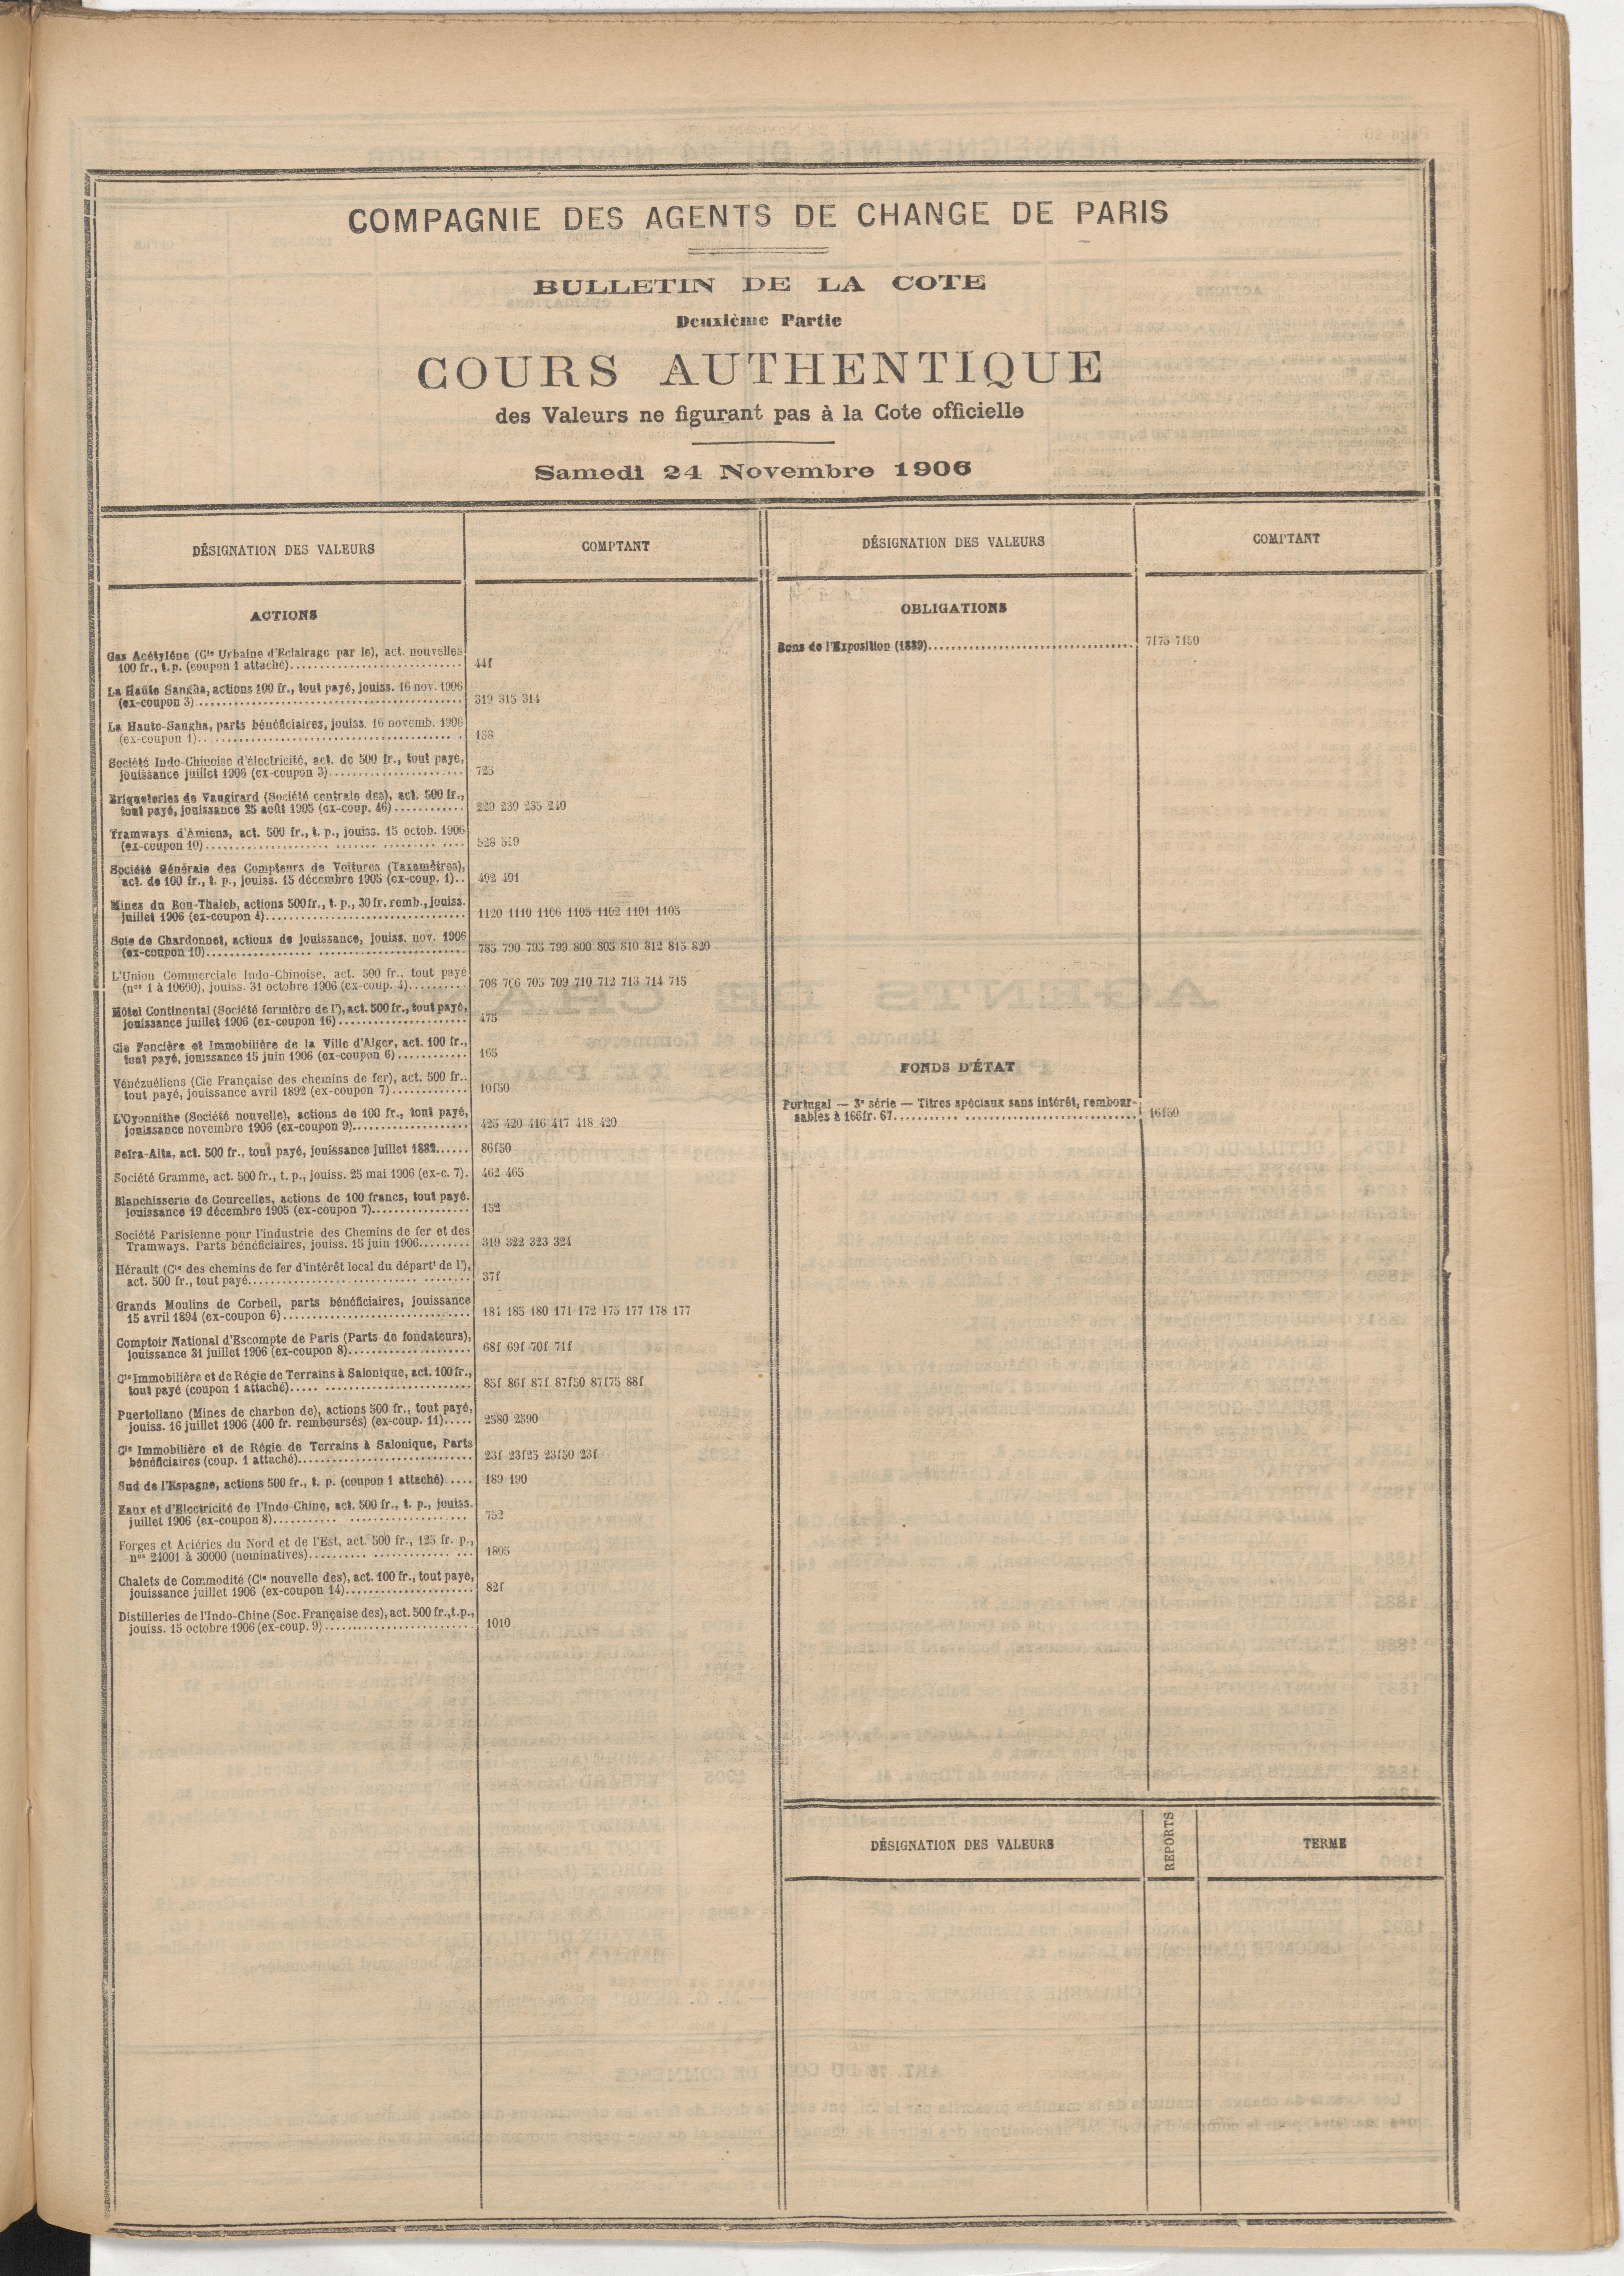 COMPAGNIE DES AGENTS DE CHANGE DE PARIS
BULLETIN DE LA COTE
Deuxième Partie
COURS AUTHENTIQUE
des Valeurs ne figurant pas à la Cote officielle
Samedi 24 Novembre 1906
DÉSIGNATION DES VALEURS
COMPTANT
ACTIONS
Gaz Acétylène (Cie Urbaine d'Eclairage par le), act. nouvelles
100 fr., t.p. (coupon 1 attaché)............ 44f
La Haute Sangha, actions 100 fr., tout payé, jouiss. 16 nov. 1906
(ex-coupon 3)............ 319 315 314
La Haute-Sangha, parts bénéficiaires, jouiss. 16 novemb. 1906
(ex-coupon 1)............ 138
Société Indo-Chinoise d'électricité, act. de 500 fr., tout payé,
jouissance juillet 1906 (ex-coupon 3)............ 725
Briqueteries de Vaugirard (Société centrale des), act. 500 fr.,
tout payé, jouissance 25 août 1905 (ex-coup. 46)............ 229 230 235 240
Tramways d'Amiens, act. 500 fr., t. p., jouiss. 15 octob. 1906
(ex-coupon 10)............ 528 519
Société Générale des Compteurs de Voitures (Taxamètres),
act. de 100 fr., t. p., jouiss. 15 décembre 1905 (ex-coup. 1).. 492 491
Mines du Bou-Thaleb, actions 500 fr., t. p., 30 fr. remb., jouiss.
juillet 1906 (ex-coupon 4)............ 1120 1110 1106 1105 1102 1101 1105
Soie de Chardonnet, actions de jouissance, jouiss. nov. 1906
(ex-coupon 10)............ 785 790 795 799 800 805 810 812 815 820
L'Union Commerciale Indo-Chinoise, act. 500 fr., tout payé
(nos 1 à 10600), jouiss. 31 octobre 1906 (ex-coup. 4)............ 708 706 705 709 710 712 713 714 715
Hôtel Continental (Société fermière de l'), act. 500 fr., tout payé,
jouissance juillet 1906 (ex-coupon 16)............ 475
Cie Foncière et Immobilière de la Ville d'Alger, act. 100 fr.,
tout payé, jouissance 15 juin 1906 (ex-coupon 6)............ 165
Vénézuéliens (Cie Française des chemins de fer), act. 500 fr..
tout payé, jouissance avril 1892 (ex-coupon 7)............ 10f50
L'Oyonnithe (Société nouvelle), actions de 100 fr., tout payé,
jouissance novembre 1906 (ex-coupon 9)............ 425 420 416 417 418 420
Beïra-Alta, act. 500 fr., tout payé, jouissance juillet 1882...... 86f50
Société Gramme, act. 500 fr., t. p., jouiss. 25 mai 1906 (ex-c. 7). 462 465
Blanchisserie de Courcelles, actions de 100 francs, tout payé.
jouissance 19 décembre 1905 (ex-coupon 7)............ 152
Société Parisienne pour l'industrie des Chemins de fer et des
Tramways. Parts bénéficiaires, jouiss. 15 juin 1906......... 319 322 323 324
Hérault (Cie des chemins de fer d'intérêt local du départt de l'),
act. 500 fr., tout payé............ 37f
Grands Moulins de Corbeil, parts bénéficiaires, jouissance
15 avril 1894 (ex-coupon 6)............ 184 185 180 171 172 175 177 178 177
Comptoir National d'Escompte de Paris (Parts de fondateurs),
jouissance 31 juillet 1906 (ex-coupon 8)............ 68f 69f 70f 71f
Cie Immobilière et de Régie de Terrains à Salonique, act. 100 fr.,
tout payé (coupon 1 attaché)............ 85f 86f 87f 87f50 87f75 88f
Puertollano (Mines de charbon de), actions 500 fr., tout payé,
jouiss. 16 juillet 1906 (400 fr. remboursés) (ex-coup. 11)..... 2580 2590
Cie Immobilière et de Régie de Terrains à Salonique, Parts
bénéficiaires (coup. 1 attaché)............ 23f 23f25 23f50 23f
Sud de l'Espagne, actions 500 fr., t. p. (coupon 1 attaché)..... 189 190
Eaux et d'Electricité de l'Indo-Chine, act. 500 fr., t. p., jouiss.
juillet 1906 (ex-coupon 8)............ 752
Forges et Aciéries du Nord et de l'Est, act. 500 fr., 125 fr. p.,
nos 24001 à 30000 (nominatives)............ 1805
Chalets de Commodité (Cie nouvelle des), act. 100 fr., tout payé,
jouissance juillet 1906 (ex-coupon 14)............ 82f
Distilleries de l'Indo-Chine (Soc. Française des), act. 500 fr., t.p.,
jouiss. 15 octobre 1906 (ex-coup. 9)............ 1010
DÉSIGNATION DES VALEURS
COMPTANT
OBLIGATIONS
Bons de l'Exposition (1889)............ 7f75 7f50
FONDS D'ÉTAT
Portugal — 3e série — Titres spéciaux sans intérêt, rembour-
sables à 166fr. 67............ 16f50
DÉSIGNATION DES VALEURS
REPORTS
TERME